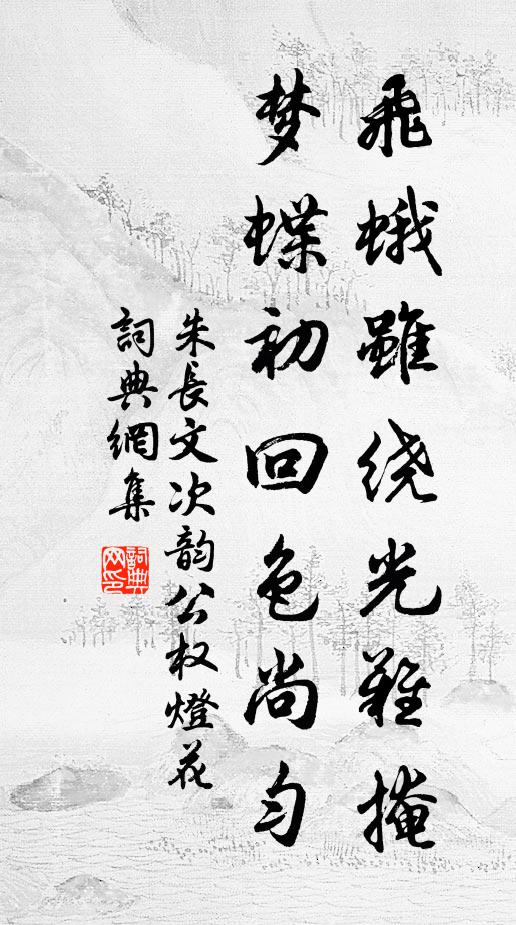 飛蛾雖绕光難掩
梦蝶初回色尚匀
朱長文次韵公权燈花
詞典網集
詞典网印